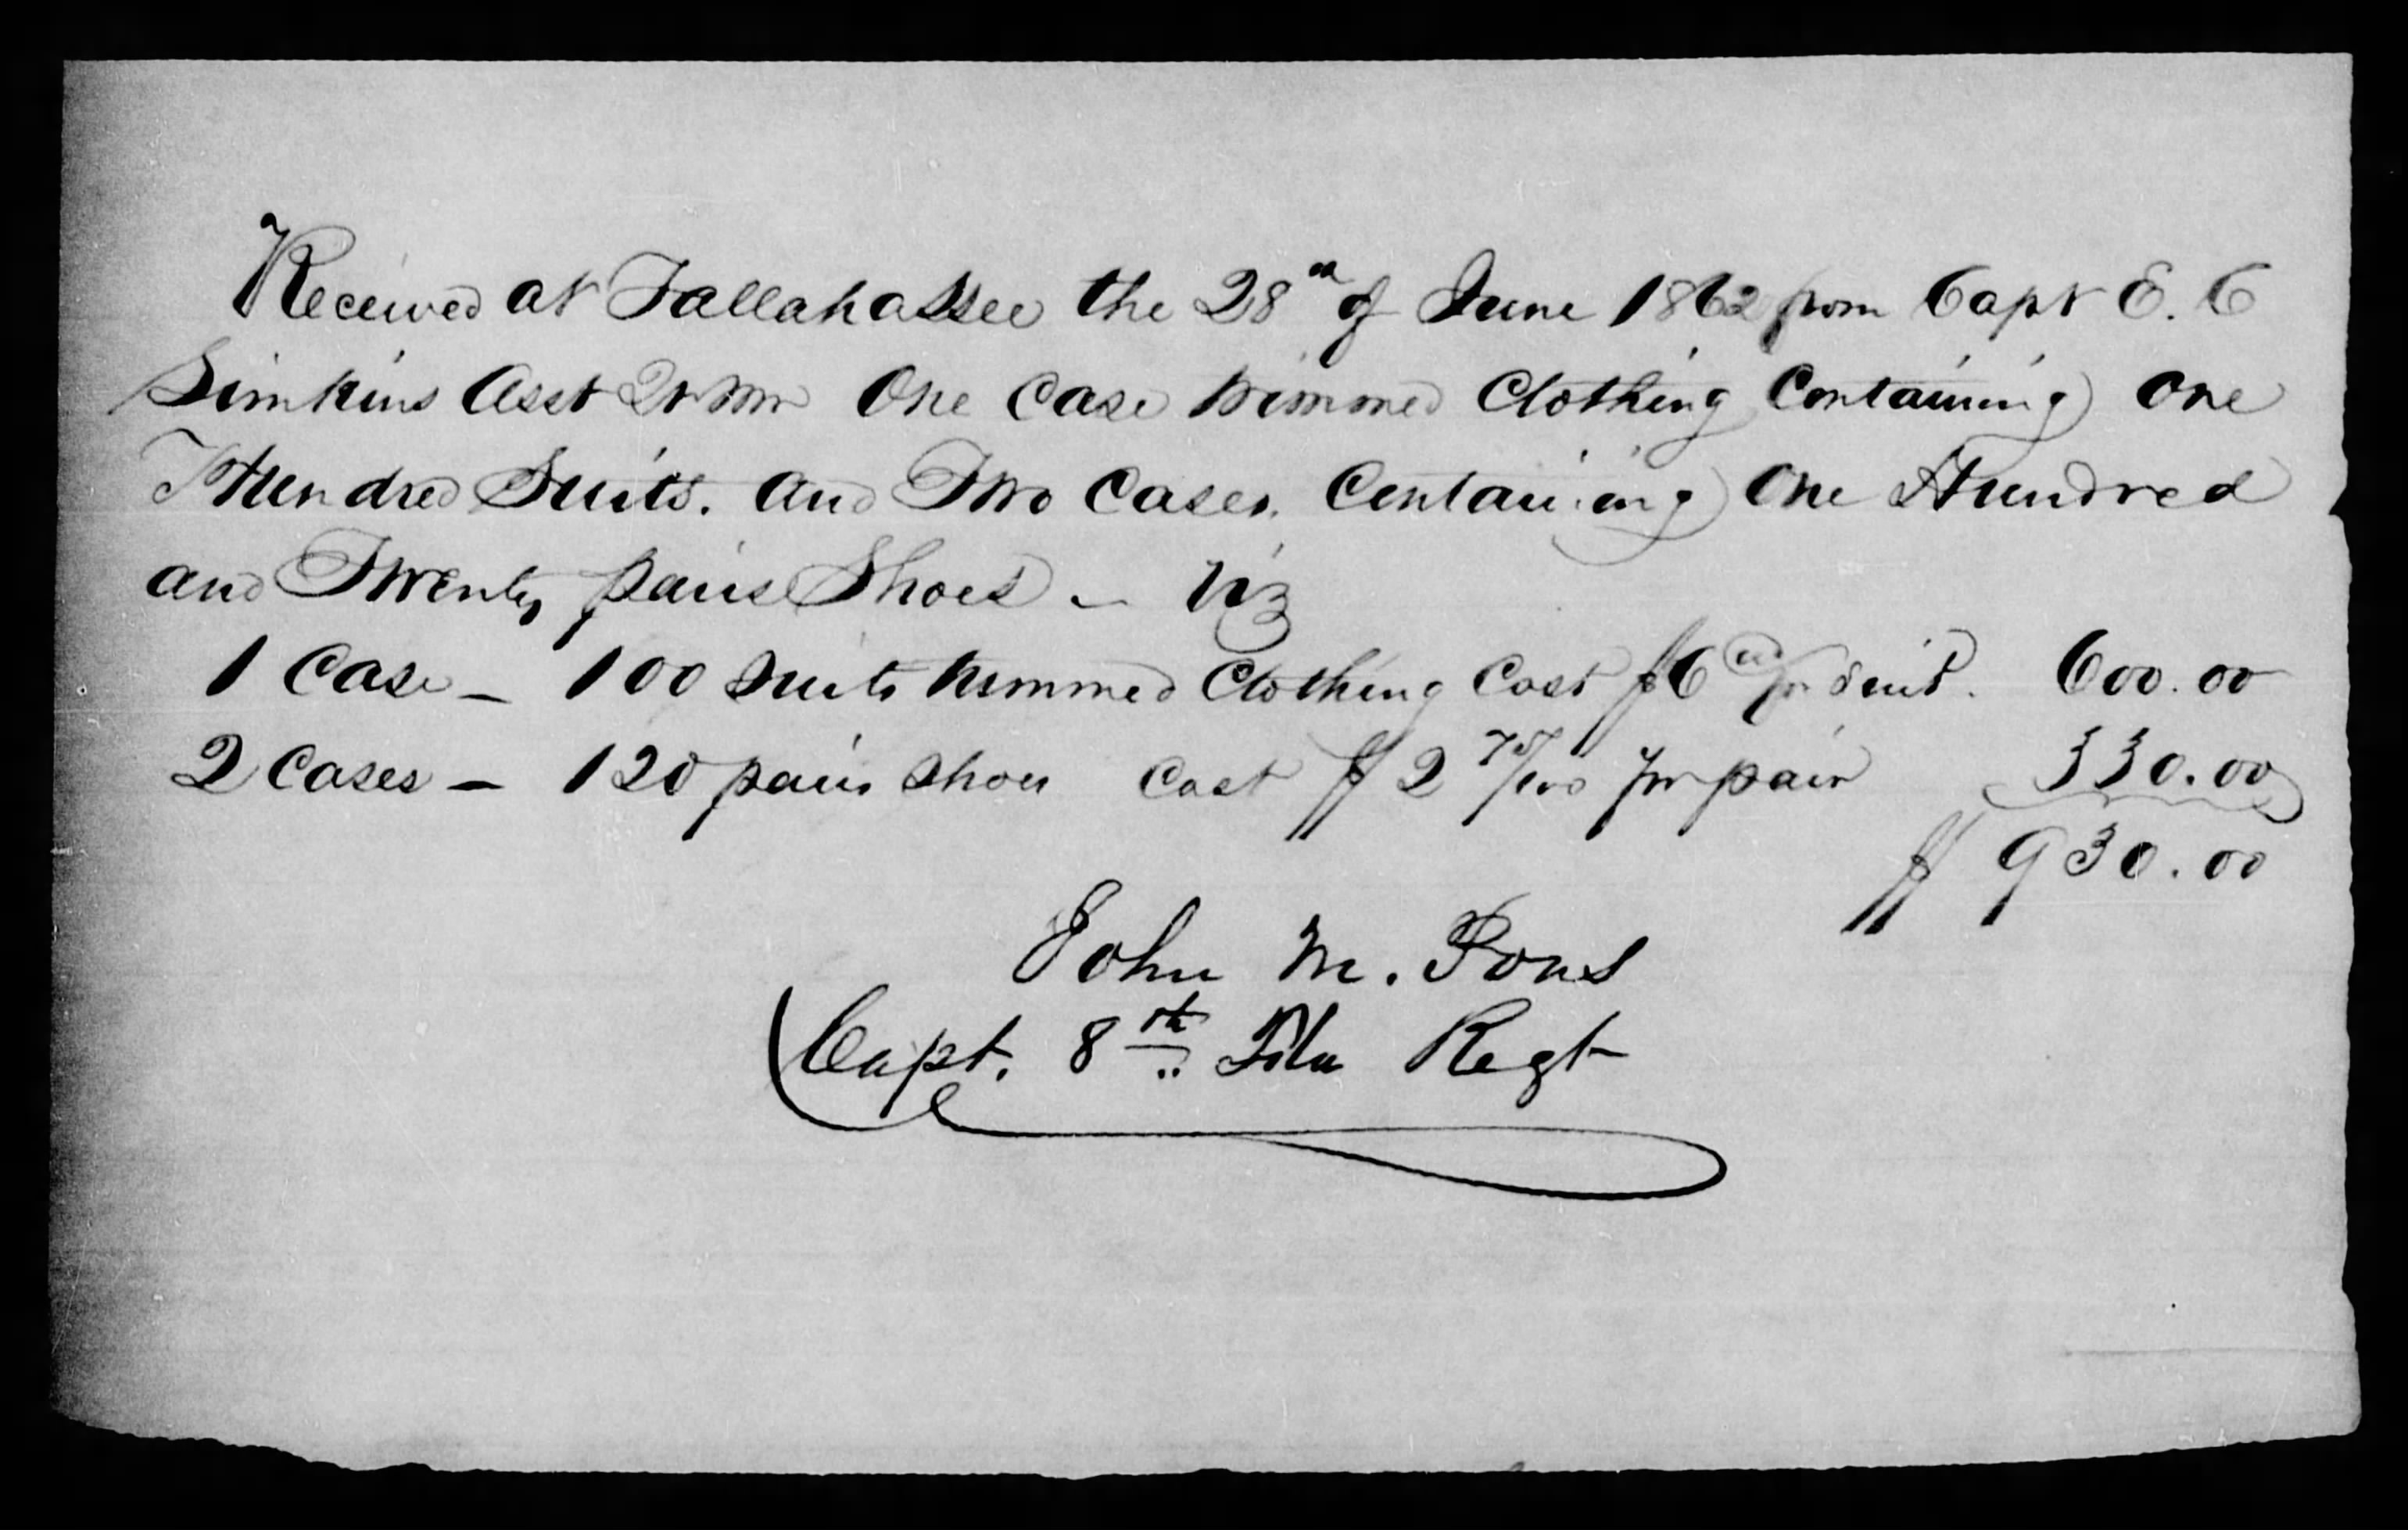 Received at Tallahassee the 28th of June 1862 from Capt E. C
Simkins Asst Qr Mr One Case trimmed Clothing Containing One
Hundred Suits. and Two Cases. Containing One Hundred
and Twenty pairs Shoes – Viz
1 Case – 100 Suits trimmed Clothing Cost $6 00/ pr Suit. 600.00
2 Cases – 120 pairs Shoes Cost $2 75/100 pr pair 330.00
$ 930.00
John M. Pons
Capt. 8th Fla Regt